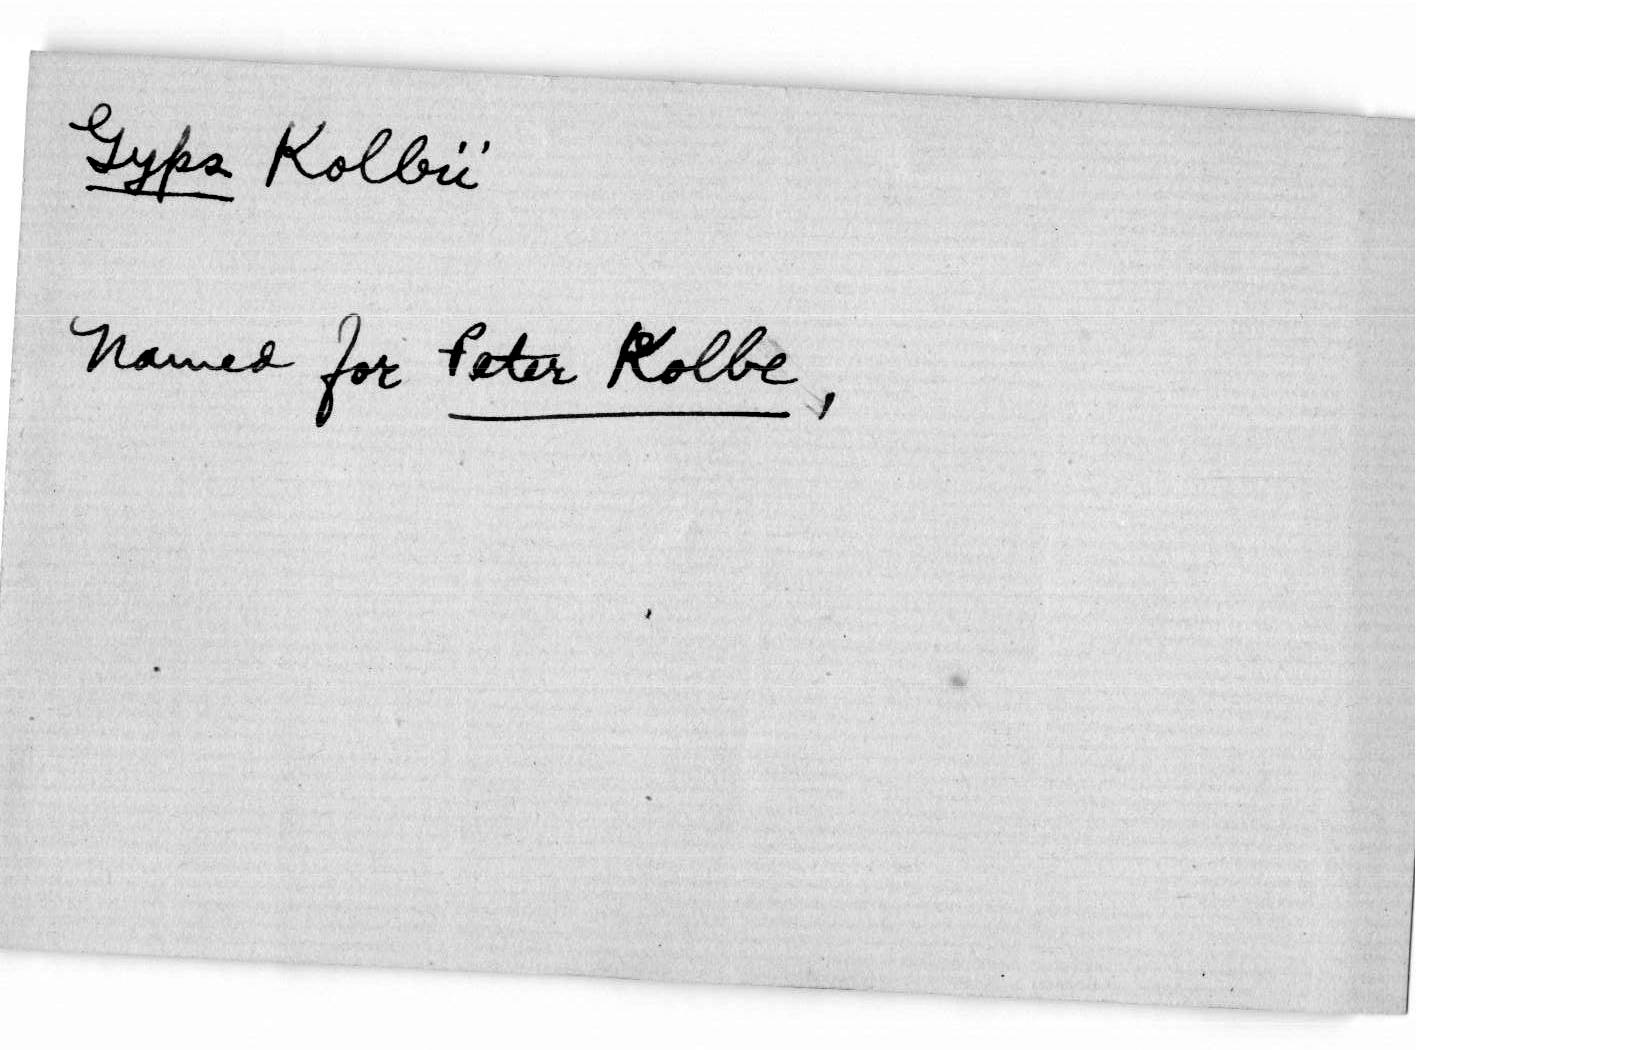 Gyps Kolbii
Named for Peter Kolbe,